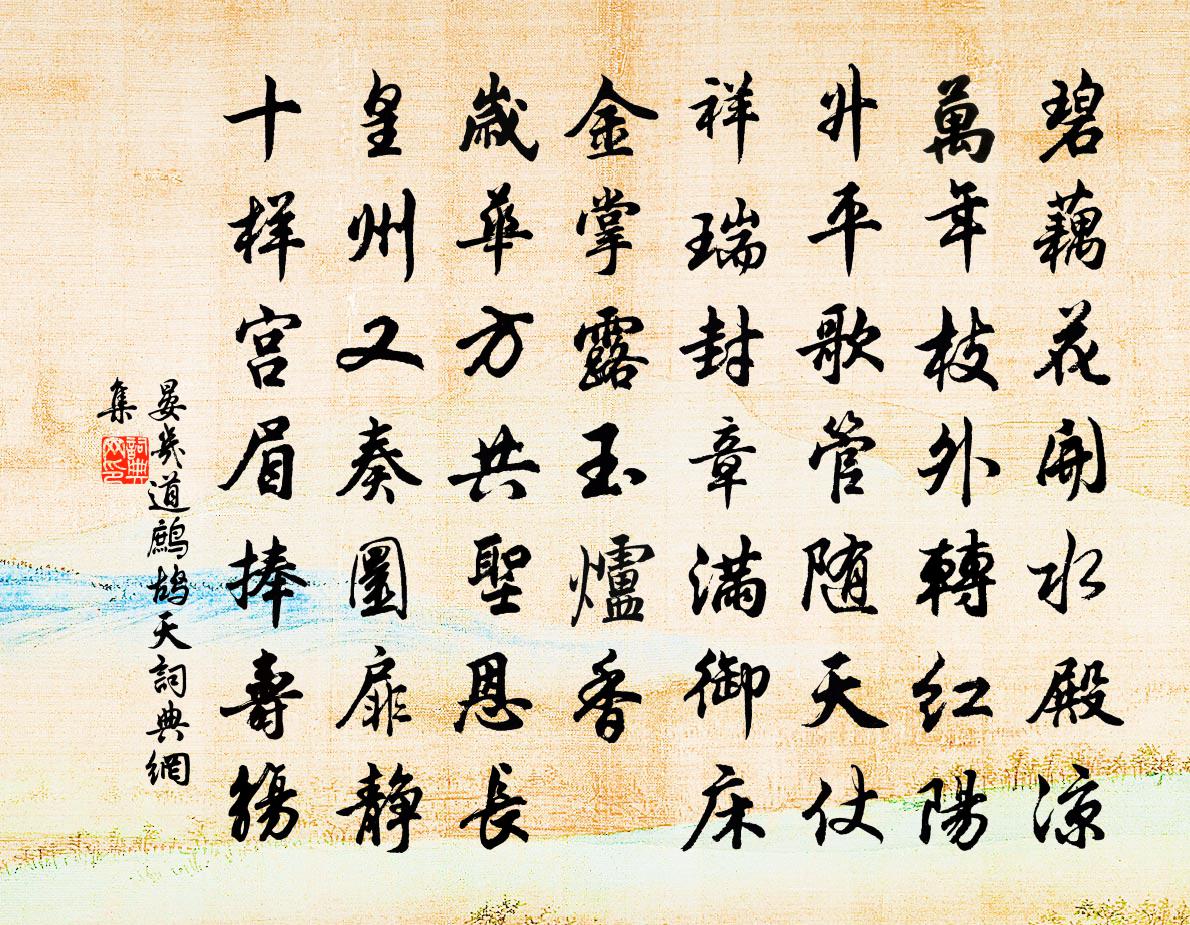 碧藕花開水殿涼
萬年枝外轉紅陽
升平歌管随天仗
祥瑞封章滿御床
金掌露玉爐香
歲華方共聖恩長
皇州又奏圜扉静
十样宫眉捧壽觴
晏幾道鷓鴣天詞典網
集
詞典
网印